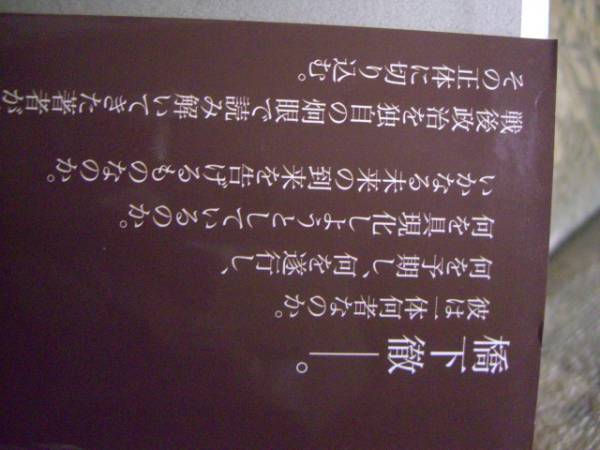 橋下徹──。
彼は一体何者なのか。
何を予期し、何を遂行し、
何を具現化しようとしているのか。
いかなる未来の到来を告げるものなのか。
戦後政治を独自の炯眼で読み解いてきた著者が
その正体に切り込む。